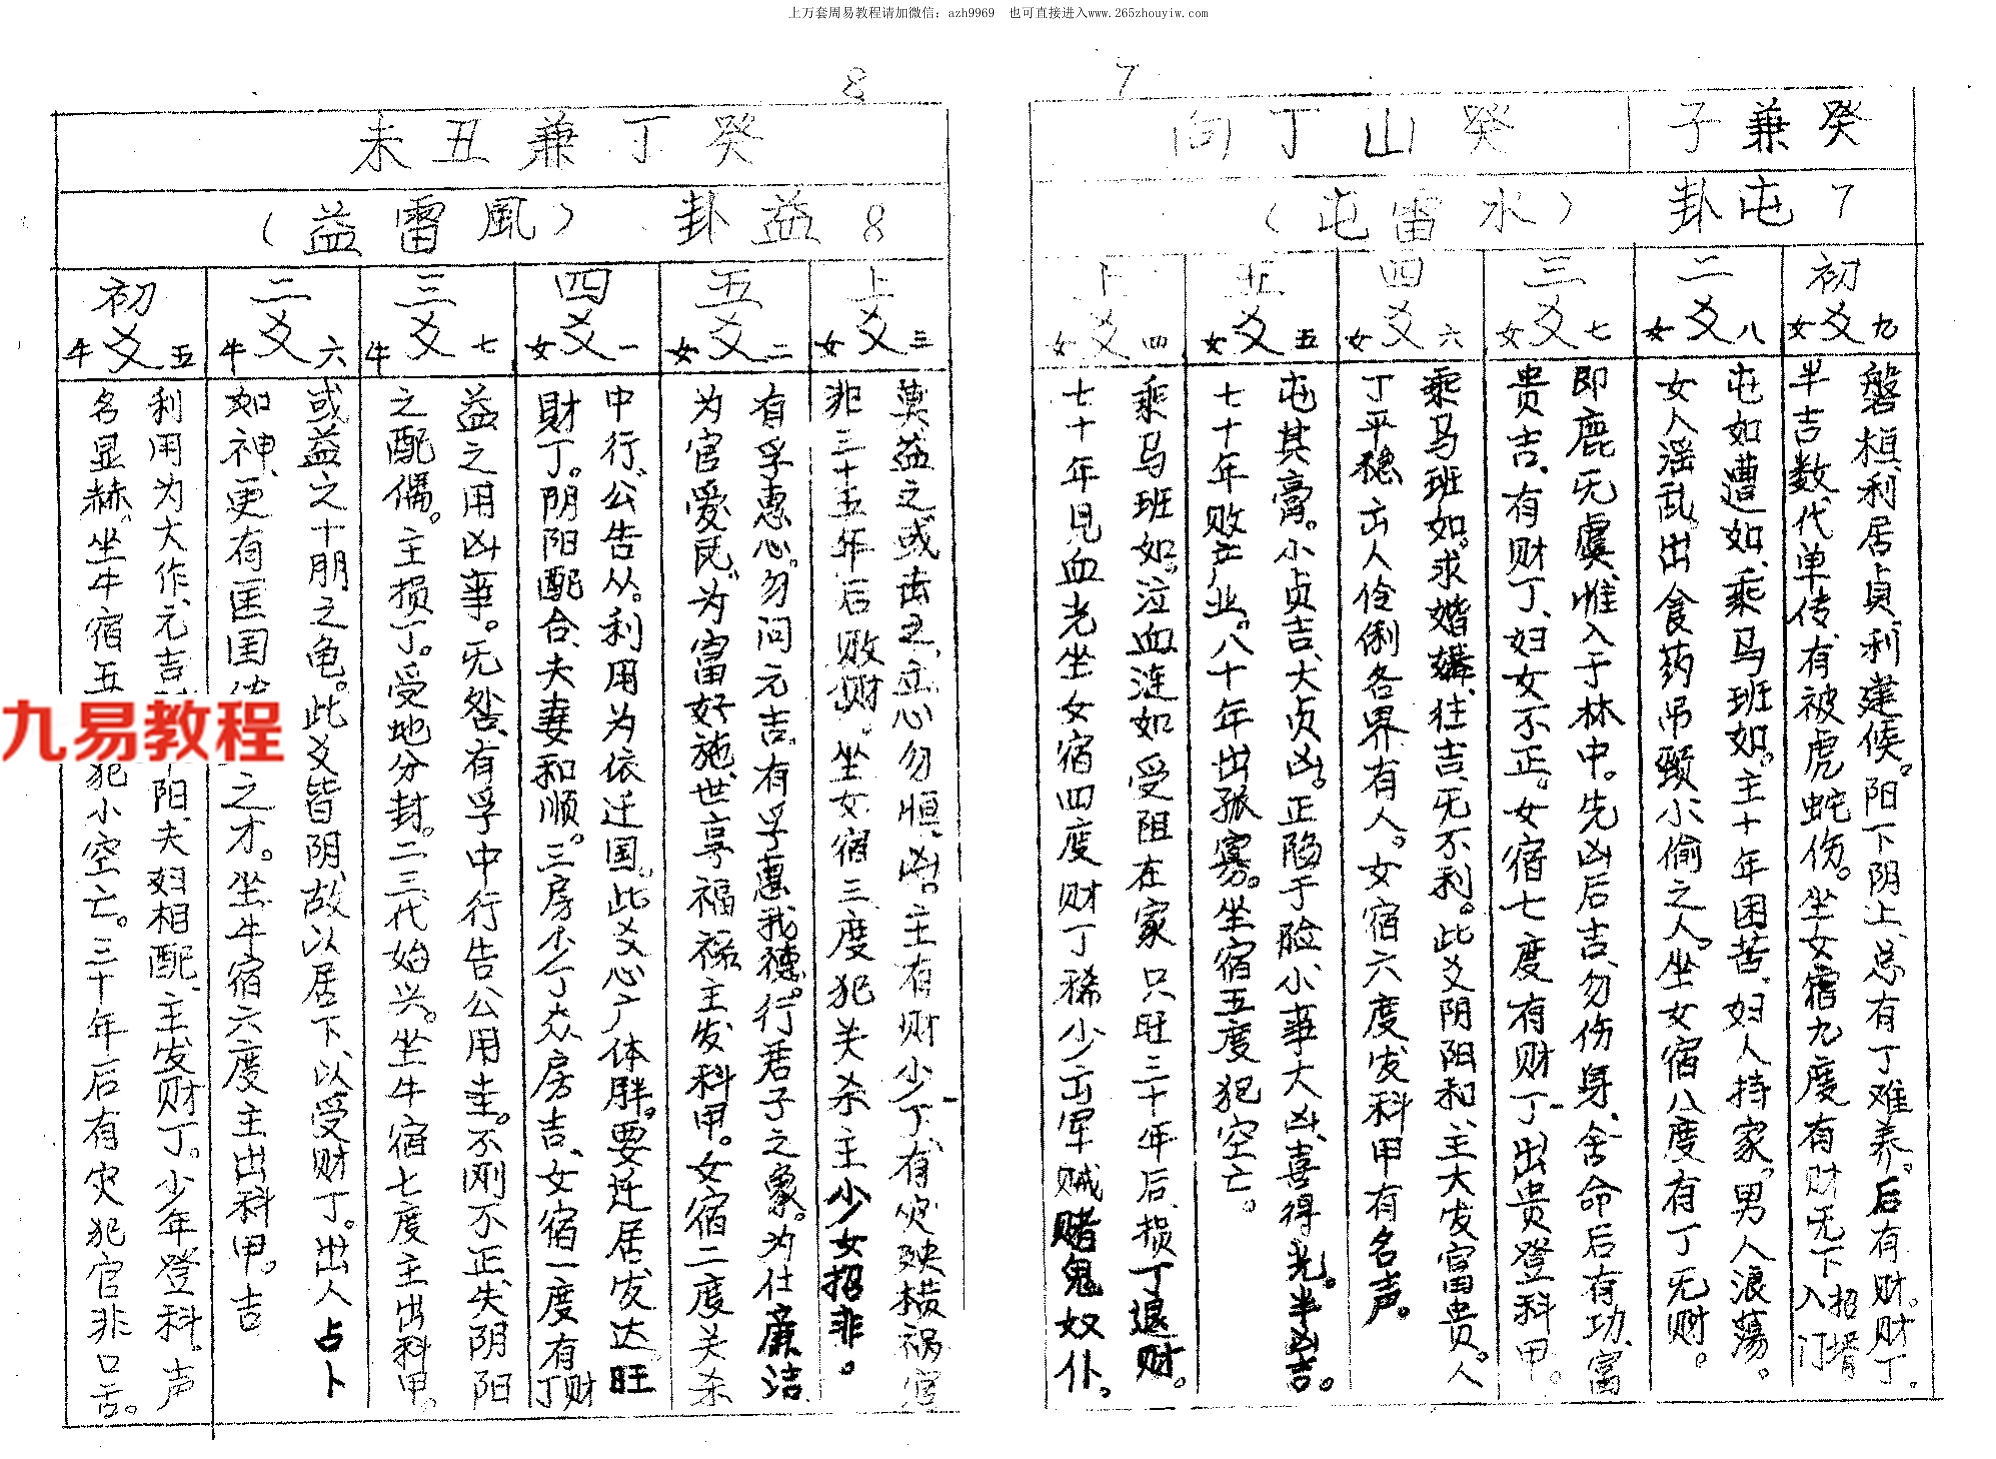 上万套周易教程请加微信：azh9969　也可直接进入www.265zhouyiw.com
7
癸兼子
癸山丁向
7 屯卦（水雷屯）
初爻 女九
磐桓，利居贞，利建候。阳下阴上、总有丁难养。后有财。财丁。
半吉数代单传、有被虎蛇伤。坐女宿九度有财无下招婿入门
二爻 女八
屯如遭如、乘马班如。主十年困苦、妇人持家。男人浪荡。
女入淫乱。出食药吊颈小偷之人。坐女宿八度有丁无财。
三爻 女七
即鹿无虞、惟入于林中。先凶后吉、勿伤身、舍命后有功、富
贵吉、有财丁、妇女不正。女宿七度有财丁、出贵登科甲。
四爻 女六
乘马班如。求婚媾、往吉、无不利。此爻阴阳和、主大发富贵。人
丁平稳出人伶俐各界有人。女宿六度发科甲有名声。
五爻 女五
屯其膏。小贞吉、大贞凶。正陷于险、小事大凶、喜得光。半凶吉。
七十年败产业。八十年出孤寡。坐宿五度犯空亡。
上爻 女四
乘马班如。泣血涟如受阻在家只旺三十年后、损丁退财。
七十年见血光坐女宿四度财丁稀少出军贼赌鬼奴仆。
8
癸丁兼丑未
8 益卦（風雷益）
上爻 女三
莫益之或击之、立心勿恒、凶。主有财少丁、有灾殃横祸官
非三十五年后败财。坐女宿三度犯关杀主少女招非。
五爻 女二
有孚惠心。勿问元吉。有孚惠我德。行君子之象。为仕廉洁
为官爱民。为富好施、世享福禄主发科甲。女宿二度关杀
四爻 女一
中行、公告从。利用为依迁国。此爻心广体胖。要迁居、发达旺
財丁。阴阳配合、夫妻和顺。三房不丁众房吉、女宿一度有丁财
三爻 牛七
益之用凶事。无咎、有孚中行告公用圭。不刚不正、失阴阳
之配偶。主损丁。受地分封。二三代始兴。坐牛宿七度主出科甲。
二爻 牛六
或益之十朋之龟。此爻皆阴、故以居下、以受财丁。出人占卜
如神、更有匡国之才。坐牛宿六度主出科甲。吉
初爻 牛五
利用为大作、元吉阳、夫妇相配、主发财丁。少年登科。声
名显赫。坐牛宿五犯小空亡。三十年后有灾犯官非口舌。
九易教程